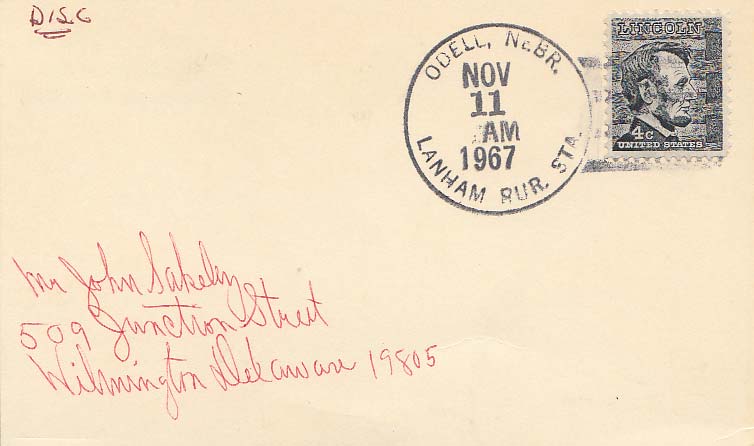 DISC
ODELL, NEBR.
NOV
11
AM
1967
LANHAM RUR. STA.
LINCOLN
4c
UNITED STATES
Mr John Sakely
509 Junction Street
Wilmington Delaware 19805